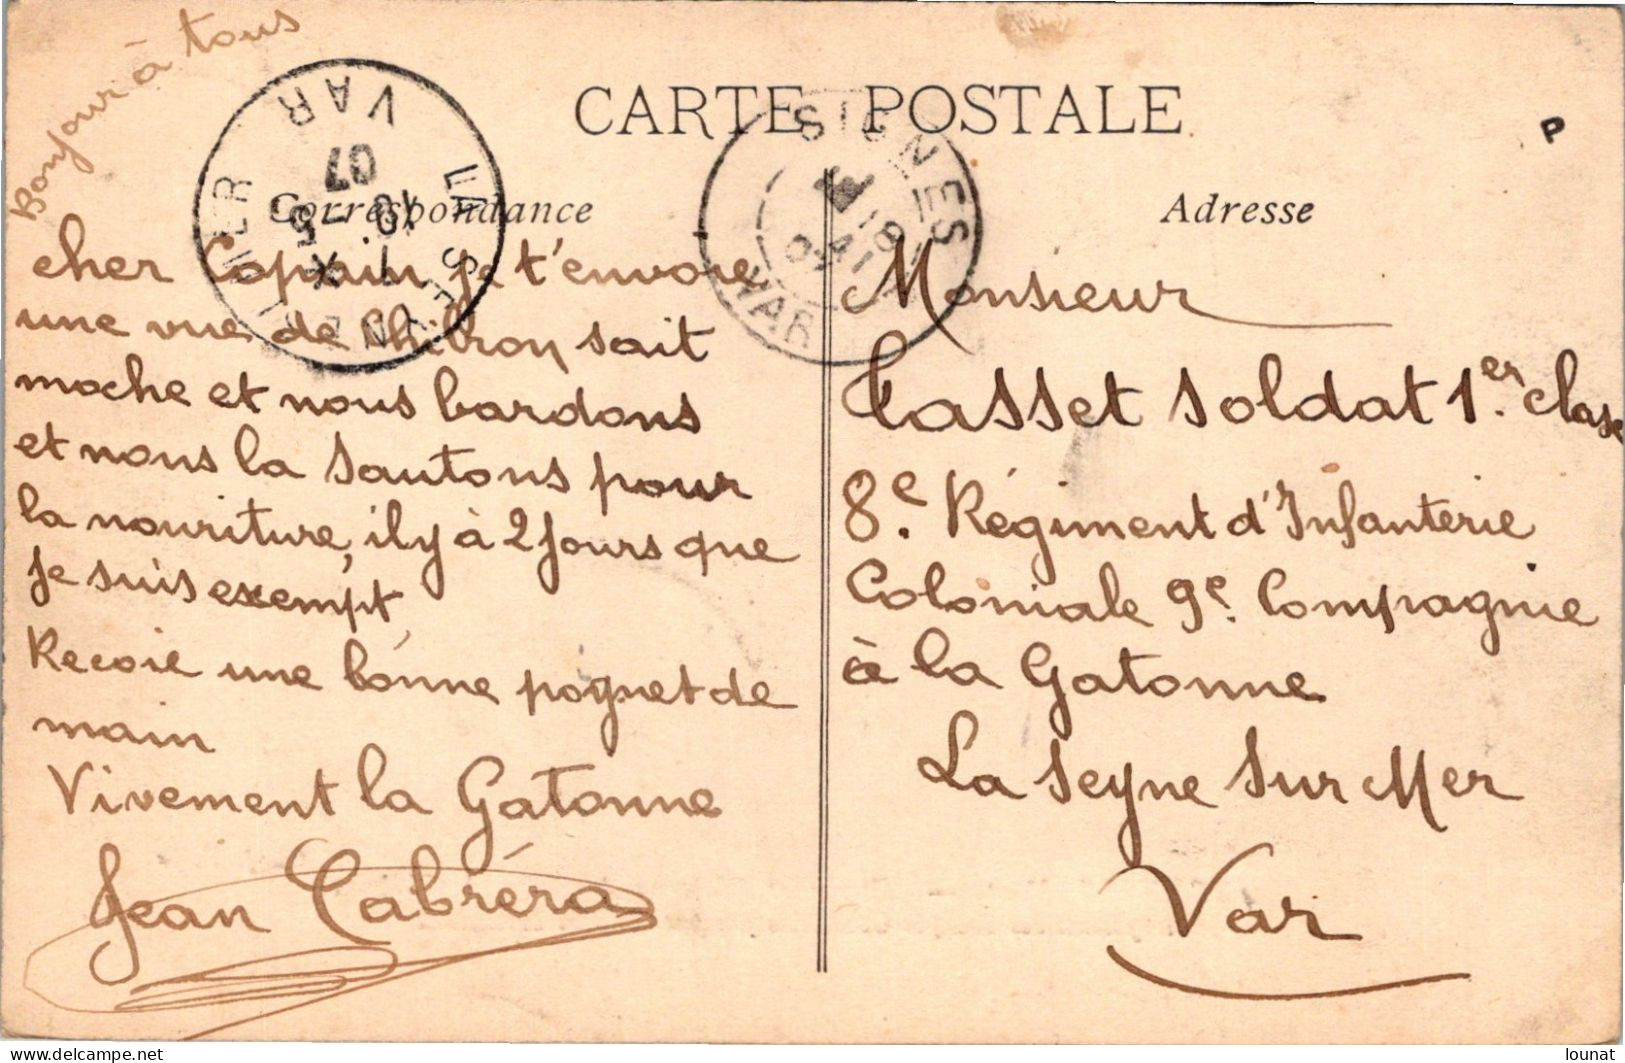 Bonjour à tous
CARTE POSTALE
Correspondance
cher Copain je t'envoie
une vue de Chibron sait
moche et nous bardons
et nous la sautons pour
la nouriture, il y à 2 jours que
je suis exempt
Recoie une bonne pognet de
main
Vivement la Gatonne
Jean Cabréra
Adresse
Monsieur
Casset soldat 1.er classe
8.e Régiment d'Infanterie
Coloniale 9.e Compagnie
à la Gatonne
La Seyne Sur Mer
Var
LA SEYNE
VAR
07
SIGNES
VAR
P
delcampe.net
lounat